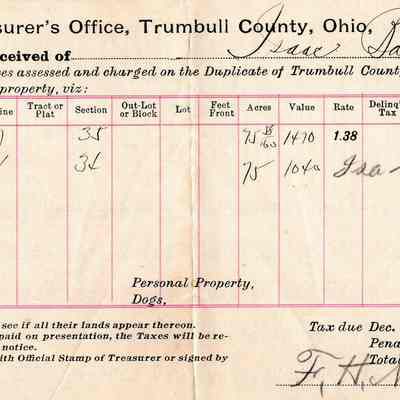 surer's Office, Trumbull County, Ohio,
ceived of Isaac
es assessed and charged on the Duplicate of Trumbull County
property, viz:
ine Tract or Plat Section Out-Lot or Block Lot Feet Front Acres Value Rate Delinq' Tax
35 75 1470 1.38
34 75 1040
Personal Property,
Dogs,
see if all their lands appear thereon.
paid on presentation, the Taxes will be re-
notice.
ith Official Stamp of Treasurer or signed by
Tax due Dec.
Pena
Tota
F. H.